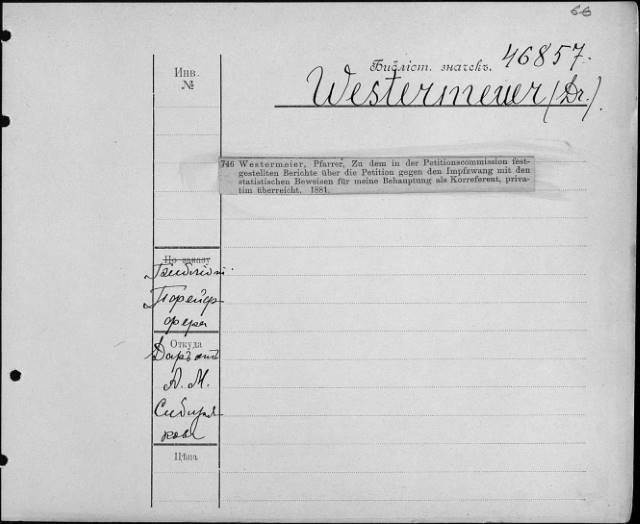 66
Инв.
№
Библіот. значекъ.
46857.
Westermeuer (Dr.)
746 Westermeier, Pfarrer, Zu dem in der Petitionscommission fest-
gestellten Berichte über die Petition gegen den Impfzwang mit den
statistischen Beweisen für meine Behauptung als Korreferent, priva-
tim überreicht. 1881.
По заказу
Библіот.
Порейф
фера
Откуда
Даръ отъ
А. М.
Сибиря
кова
Цѣна